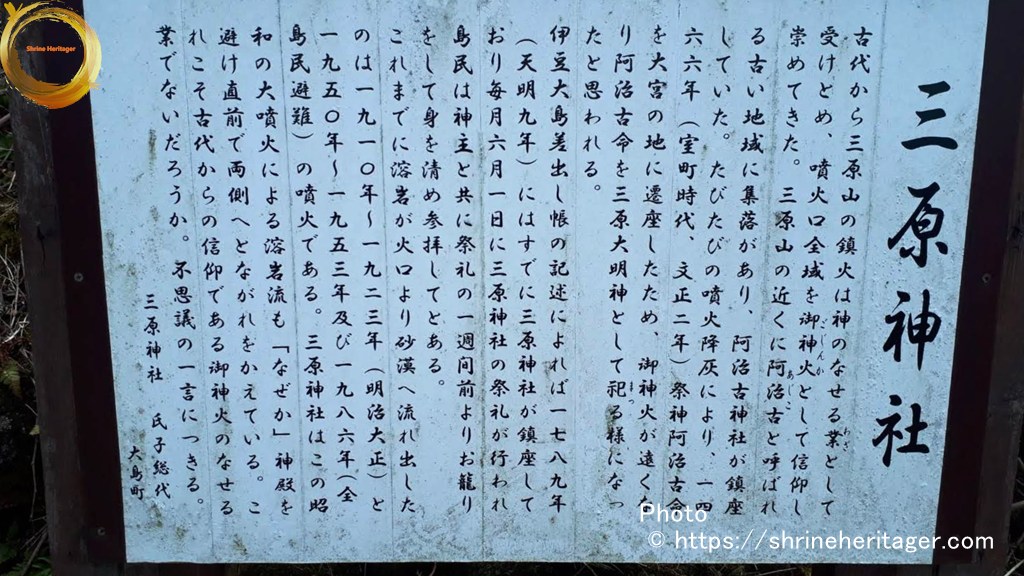 三原神社
古代から三原山の鎮火は神のなせる業として
受けとめ、噴火口全域を御神火として信仰し
崇めてきた。三原山の近くに阿治古と呼ばれ
る古い地域に集落があり、阿治古神社が鎮座
していた。たびたびの噴火降灰により、一四
六六年（室町時代、文正二年）祭神阿治古命
を大宮の地に遷座したため、御神火が遠くな
り阿治古命を三原大明神として祀る様になっ
たと思われる。
伊豆大島差出し帳の記述によれば一七八九年
（天明九年）にはすでに三原神社が鎮座して
おり毎月六月一日に三原神社の祭礼が行われ
島民は神主と共に祭礼の一週間前よりお籠り
をして身を清め参拝してとある。
これまでに溶岩が火口より砂漠へ流れ出した
のは一九一〇年～一九二三年（明治大正）と
一九五〇年～一九五三年及び一九八六年（全
島民避難）の噴火である。三原神社はこの昭
和の大噴火による溶岩流も「なぜか」神殿を
避け直前で両側へとながれをかえている。こ
れこそ古代からの信仰である御神火のなせる
業でないだろうか。不思議の一言につきる。
三原神社　氏子総代
大島町
わざ
ごじんか
あじこ
まつ
Shrine Heritager
Photo
© https://shrineheritager.com